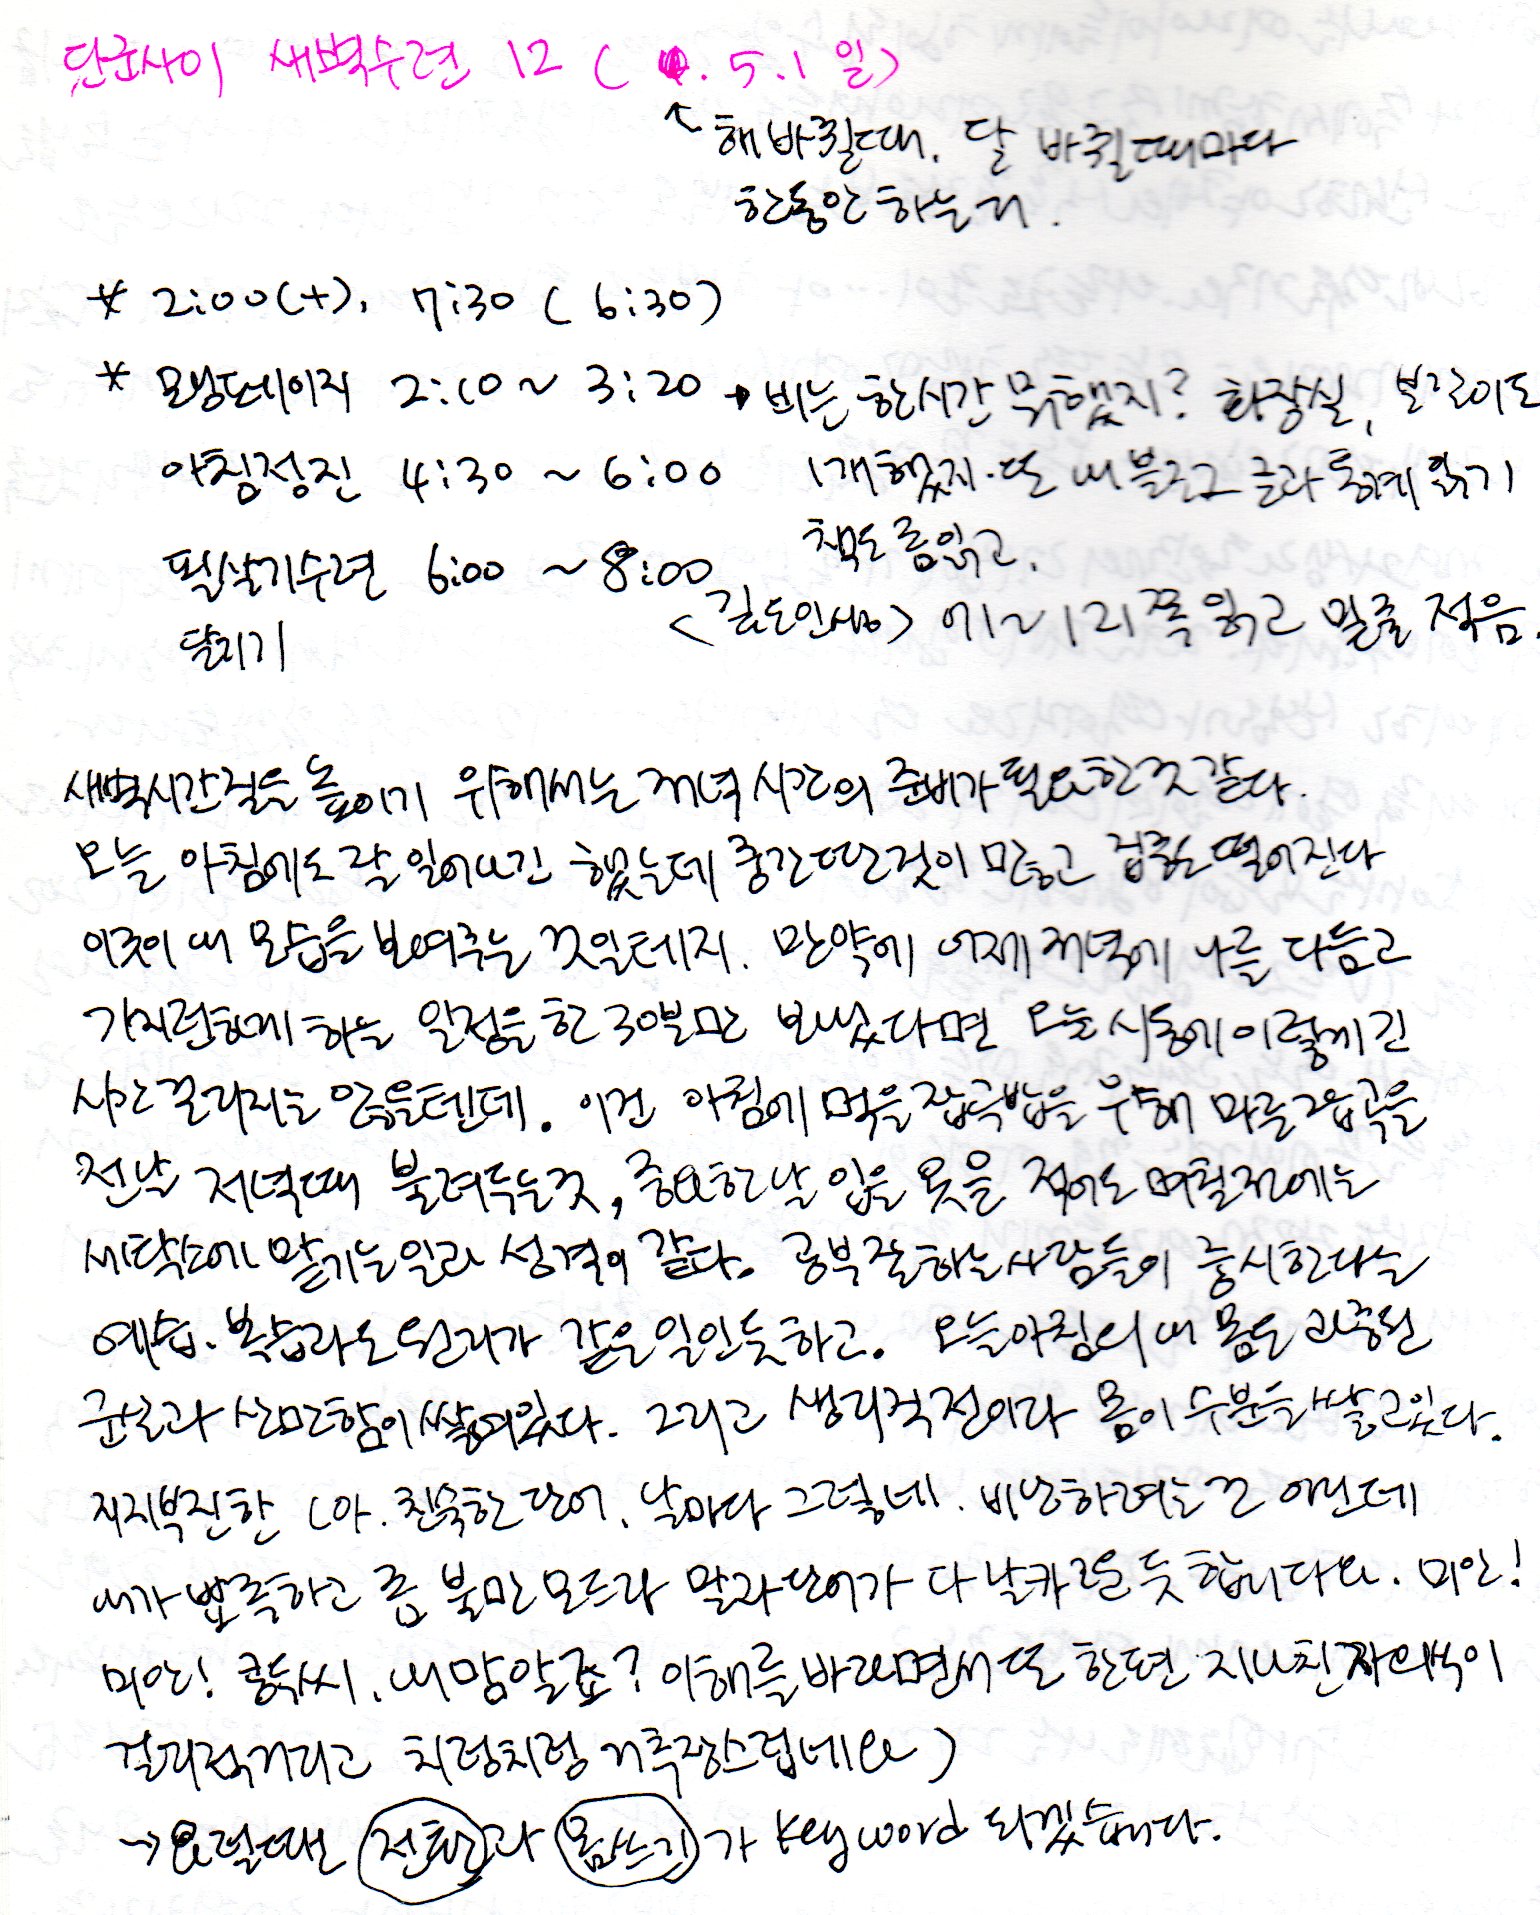 단군사이 새벽수련 12 ( . 5. 1 일)
↖ 해 바뀔때, 달 바뀔때마다
한동안 하는 거.
* 2:00(+), 7:30 ( 6:30)
* 모닝페이지 2:10 ~ 3:20 → 비는 한시간 뭐했지? 화장실, 보
아침정진 4:30 ~ 6:00 1개 했지. 또 내 블로그 글과 통계 읽기
책도 좀 읽고.
필살기수련 6:00 ~ 8:00
<길도인생> 에 ~ 121쪽 읽고 밑줄 적음.
달리기
새벽시간 질을 높이기 위해서는 저녁 시간의 준비가 필요한 것 같다.
오늘 아침에도 잘 일어나긴 했는데 중간 딴 것이 많고 집중도 떨어진다
이것이 내 모습을 보여주는 것일테지. 만약에 어제 저녁에 나를 다듬고
가지런하게 하는 일정을 한 30분만 보냈다면 오늘 시동에 이렇게 긴
시간 걸리지는 않을텐데. 이건 아침에 먹을 잡곡밥을 위해 마른 잡곡을
전날 저녁때 불려두는 것, 중요한 날 입을 옷을 적어도 며칠전에는
세탁소에 맡기는 일과 성격이 같다. 공부 잘하는 사람들이 중시한다는
예습. 복습과도 원리가 같은 일인 듯하고. 오늘 아침의 내 몸은 과중한
피로과 산만함이 쌓여있다. 그리고 생리 직전이라 몸이 수분을 쌓고 있다.
지지부진한 (아. 친숙한 단어. 날마다 그렇네. 비난하려는 건 아닌데
내가 뾰족하고 좀 불만 모드라 말과 단어가 다 날카로운 듯 합니다요. 미안!
미안! 씨. 내 맘 알죠? 이해를 바라면서 또 한편 지나친 자의식이
걸리적거리고 치렁치렁 거추장스럽네요)
→ 요럴때는 전환과 몸쓰기가 keyword 되겠습니다.